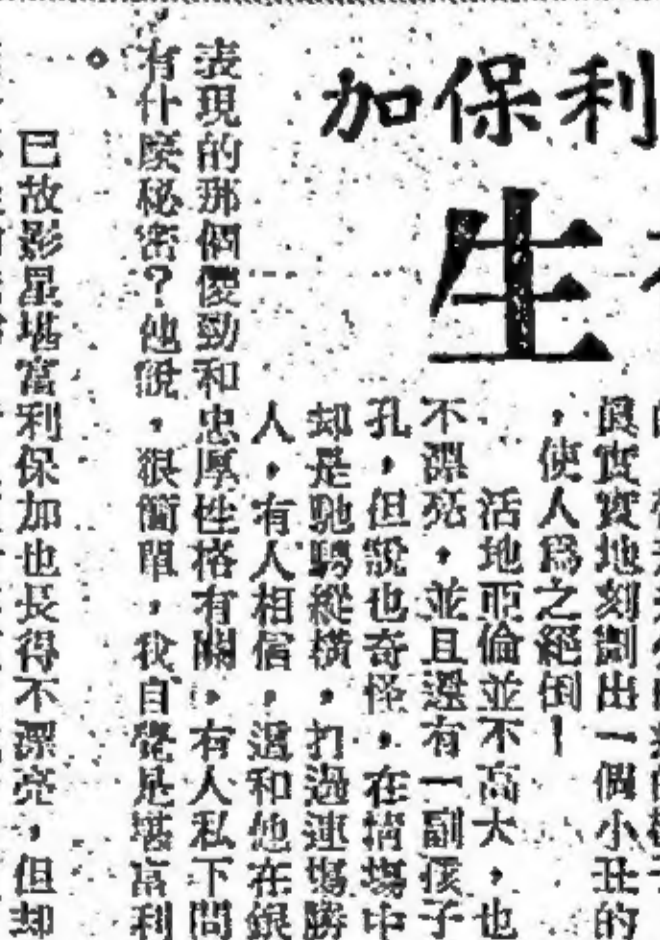 利保加
生
真實實地刻劃出一個小丑的
，使人為之絕倒！
活地亞倫並不高大，也
不漂亮，並且還有一副孩子
孔，但說也奇怪，在情場中
却是馳騁縱橫，打過連場勝
人，有人相信，這和他在銀
表現的那個傻勁和忠厚性格有關，有人私下問
有什麼秘密？他說，很簡單，我自覺是堪富利
。
已故影星堪富利保加也長得不漂亮，但却